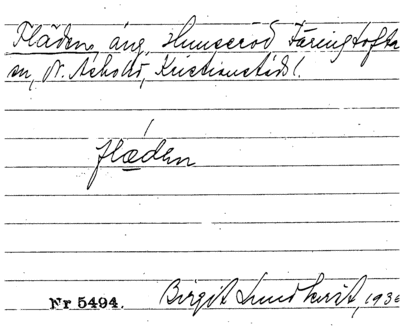 Fläden, äng, Hunseröd Färingtofta
sn, N. Åsbohd, Kristianstads l.
flæden
Nr 5494. Birgit Lundkvist, 1936